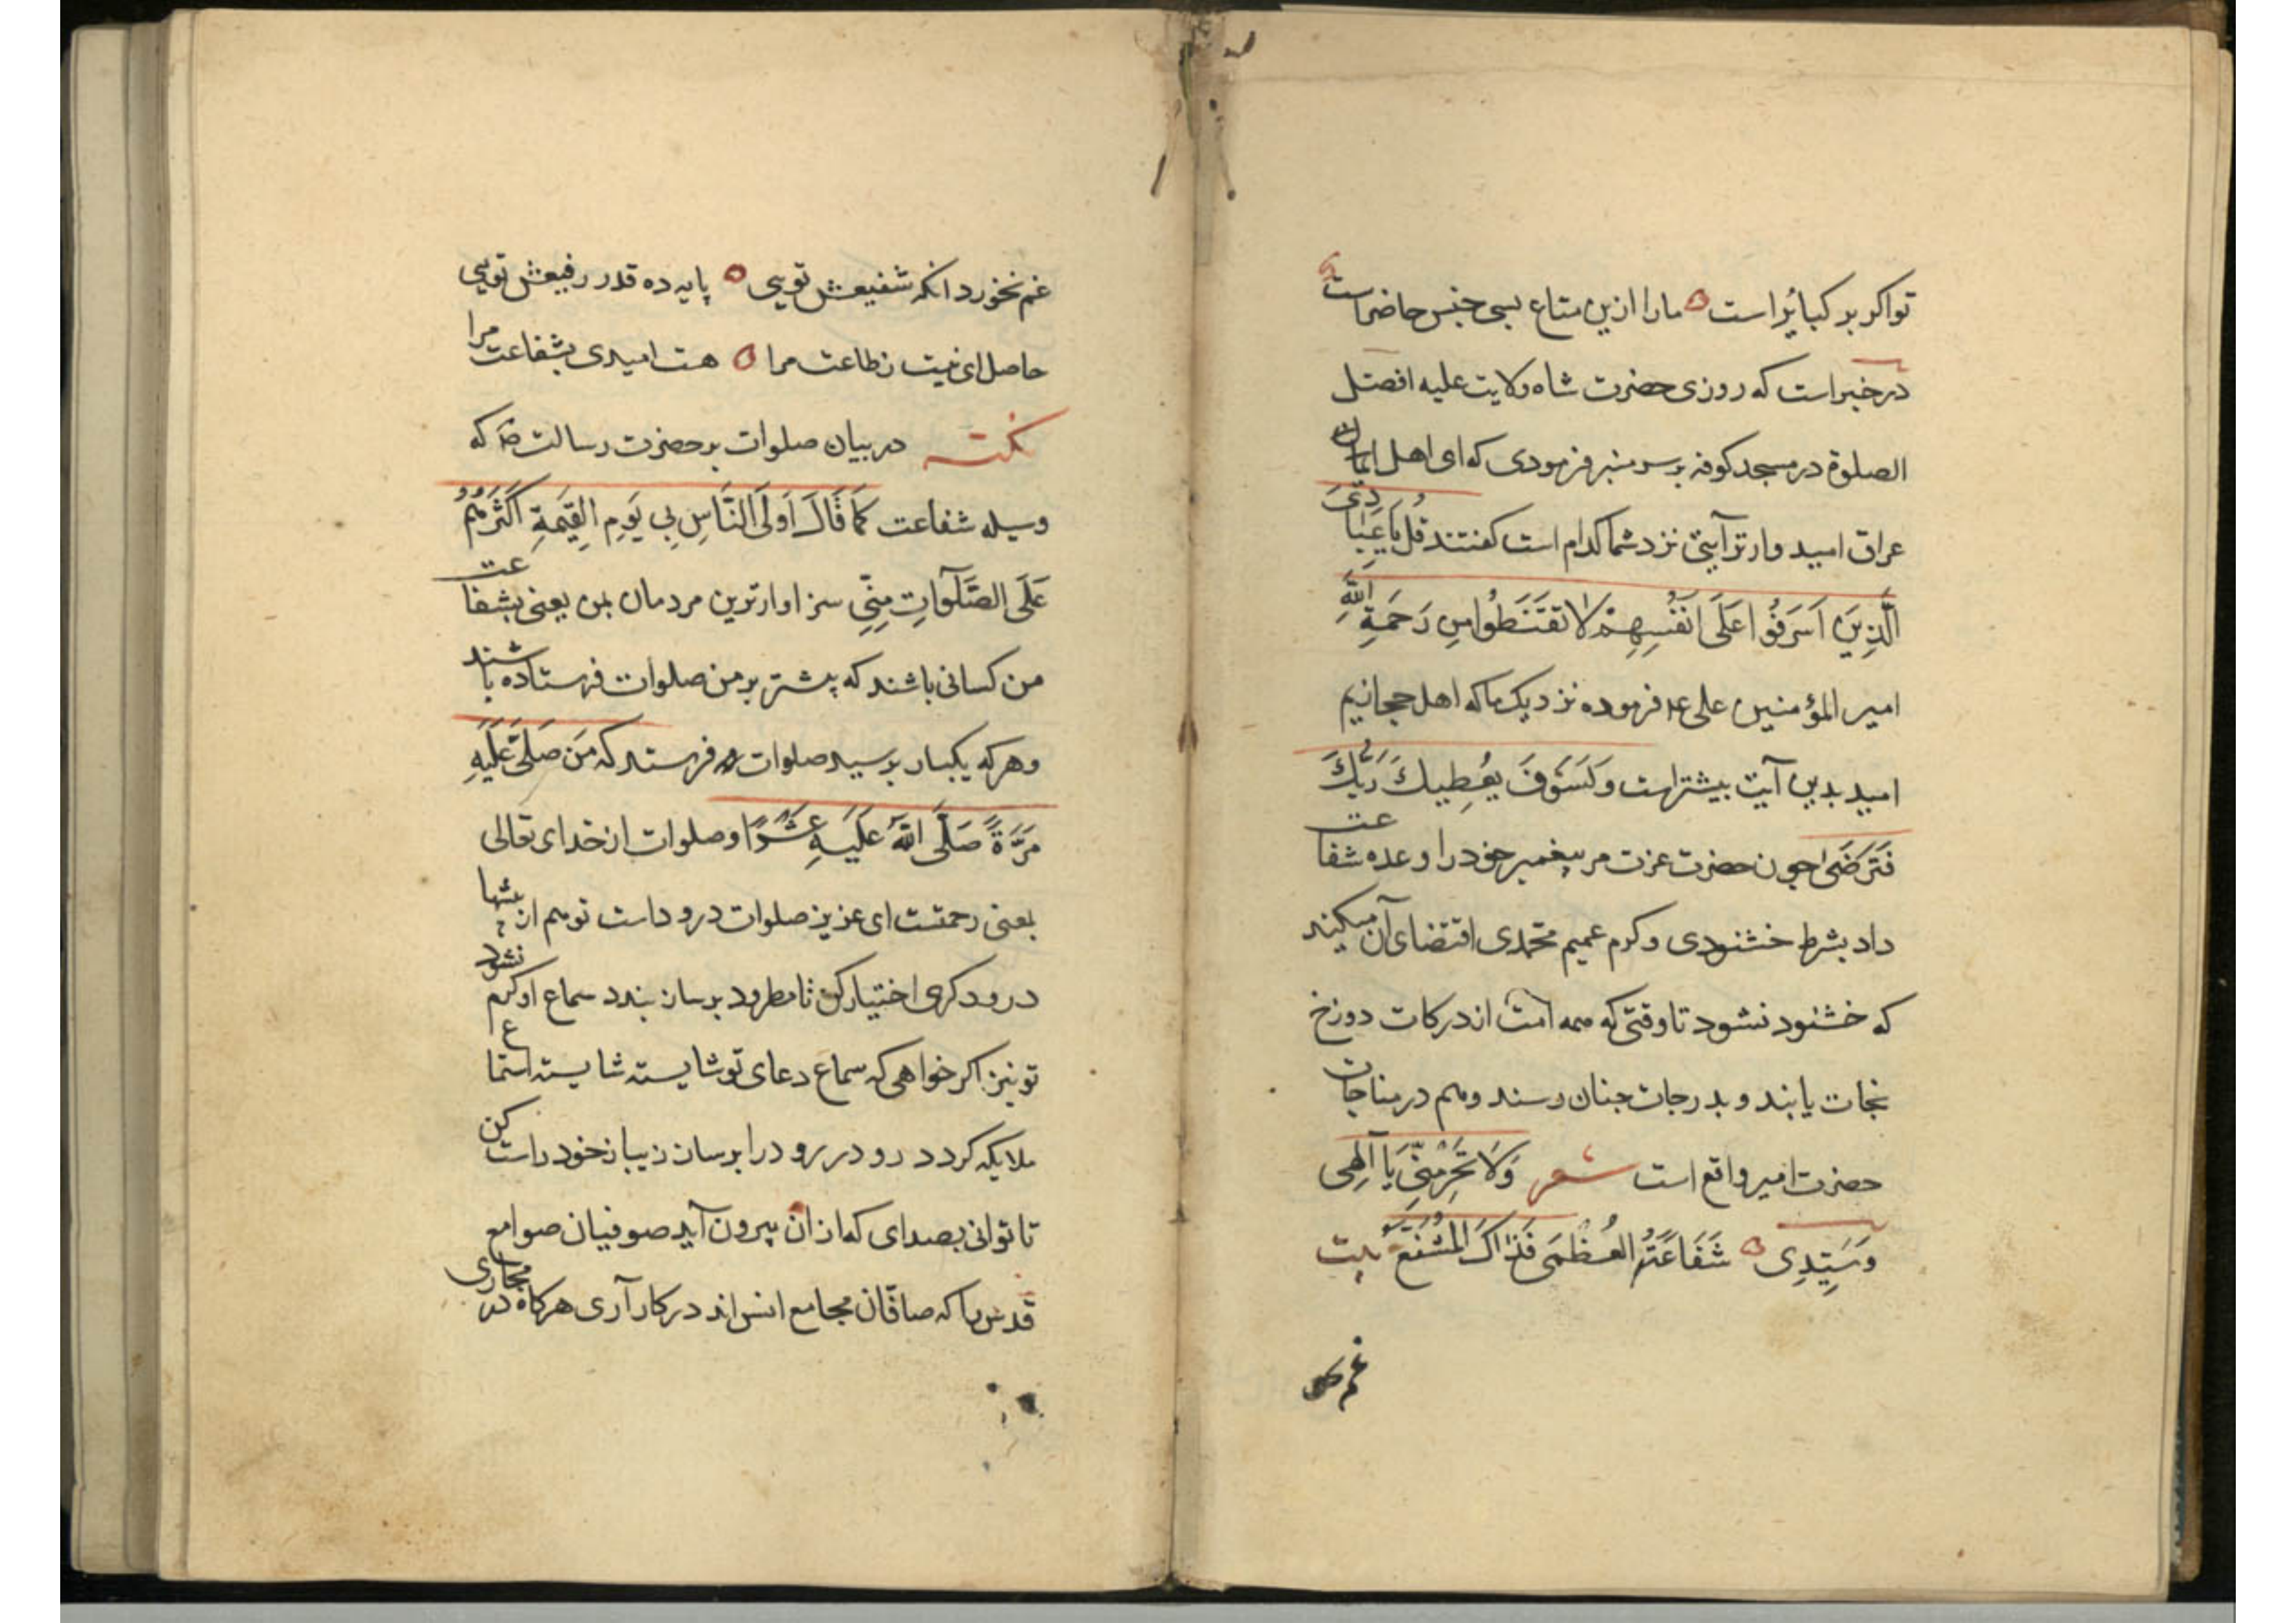 تو اکر بر کبایُر است ما را ازین متاع بسی جنس حاضر است
در خبر است که روزی حضرت شاه ولایت علیه افضل
الصلوة در مسجد کوفه بر سر منبر فرمودی که ای اهل ایمان
عراق امید وارتر آیتی نزد شما کدام است کفتند قُل یَا عِبَادِیَ
الَّذِینَ اَسرَفُوا عَلَی اَنفُسِهِمْ لا تَقنَطُوا مِن رَحمَةِ اللَّهِ
امیر المؤمنین علی ع فرموده نزدیک ما که اهل حجازیم
امید بدین آیت بیشتر است وَ لَسَوفَ یُعطِیكَ رَبُّكَ
فَتَرضَی چون حضرت عزت مر پیغمبر خود را وعده شفاعت
داد بشرط خشنودی و کرم عمیم محمّدی اقتضای آن میکند
که خشنود نشود تا وقتی که همه امت از درکات دوزخ
نجات یابند و بدرجات جنان رسند و هم در مناجات
حضرت امیر واقع است شعر وَلَا تَحرِمَنِّی یَا اَلهِی
وَسَیِّدِی شَفَاعَتَهُ العُظمَی فَذَاكَ المُشَفَّعُ بیت
غم نخورد انکه شفیعش تویی پایه ده قدر رفیعش تویی
حاصل ای نیست ز طاعت مرا هست امیدی بشفاعت مرا
نکته در بیان صلوات بر حضرت رسالت ص که
وسیله شفاعت کَمَا قَالَ اَولَی النَّاسِ بِی یَومِ القِیَمةِ اَکثَرُهُم
عَلَی الصَّلَوَاتِ مِنِّی سزاوارترین مردمان بمن یعنی بشفاعت
من کسانی باشند که بیشتر بر من صلوات فرستاده باشند
و هر که یکبار بر سید صلوات فرستد که مَن صَلَّی عَلَیهِ
مَرَّةً صَلَّی اللَّهُ عَلَیهِ عَشرًا و صلوات از خدای تعالی
بمعنی رحمتست ای عزیز صلوات درود است تو هم از
درود کری اختیار کن تا مطرود برسان بندد سماع او کرم نشود
تو نیز اکر خواهی که سماع دعای تو شایسته شایسته استماع
ملایکه کردد رو در رو درا برسان زیبان خود راست کن
تا توانی بصدای که از ان بیرون آید صوفیان صوامع
قدس را که صافّان مجامع انس اند در کار آری هرکاه در مجاری